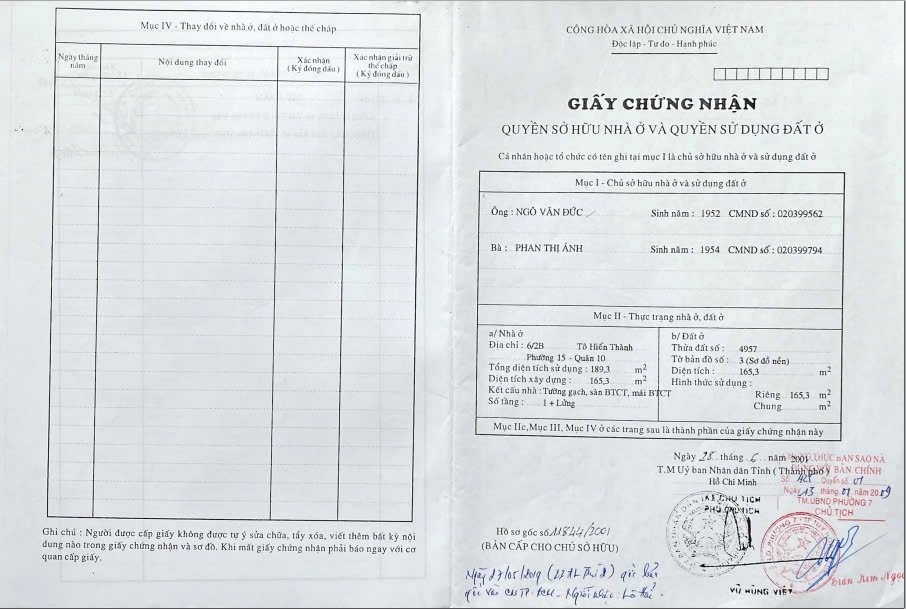 Mục IV - Thay đổi về nhà ở, đất ở hoặc thế chấp
Ngày tháng năm
Nội dung thay đổi
Xác nhận
( Ký đóng dấu )
Xác nhận giải trừ thế chấp
( Ký đóng dấu )
Ghi chú : Người được cấp giấy không được tự ý sửa chữa, tẩy xóa, viết thêm bất kỳ nội
dung nào trong giấy chứng nhận và sơ đồ. Khi mất giấy chứng nhận phải báo ngay với cơ
quan cấp giấy.
CỘNG HÒA XÃ HỘI CHỦ NGHĨA VIỆT NAM
Độc lập - Tự do - Hạnh phúc
GIẤY CHỨNG NHẬN
QUYỀN SỞ HỮU NHÀ Ở VÀ QUYỀN SỬ DỤNG ĐẤT Ở
Cá nhân hoặc tổ chức có tên ghi tại mục I là chủ sở hữu nhà ở và sử dụng đất ở
Mục I - Chủ sở hữu nhà ở và sử dụng đất ở
Ông : NGÔ VĂN ĐỨC Sinh năm : 1952 CMND số : 020399562
Bà : PHAN THỊ ÁNH Sinh năm : 1954 CMND số : 020399794
Mục II - Thực trạng nhà ở, đất ở
a/ Nhà ở
Địa chỉ : 6/2B Tô Hiến Thành
Phường 15 - Quận 10
Tổng diện tích sử dụng : 189,3 m2
Diện tích xây dựng : 165,3 m2
Kết cấu nhà : Tường gạch, sàn BTCT, mái BTCT
Số tầng : 1 + Lửng
b/ Đất ở
Thửa đất số : 4957
Tờ bản đồ số : 3 (Sơ đồ nền)
Diện tích : 165,3 m2
Hình thức sử dụng :
Riêng 165,3 m2
Chung m2
Mục IIc, Mục III, Mục IV ở các trang sau là thành phần của giấy chứng nhận này
Ngày 28 tháng 6 năm 2001
T.M Uỷ ban Nhân dân Tỉnh ( Thành phố )
Hồ Chí Minh
KT.CHỦ TỊCH
PHÓ CHỦ TỊCH
VŨ HÙNG VIỆT
CHỨNG THỰC BẢN SAO NÀY
ĐÚNG VỚI BẢN CHÍNH
Số Quyển số: 01
Ngày 13 tháng 01 năm 2019
TM.UBND PHƯỜNG 7
CHỦ TỊCH
Hồ sơ gốc số 11844/2001
(BẢN CẤP CHO CHỦ SỞ HỮU)